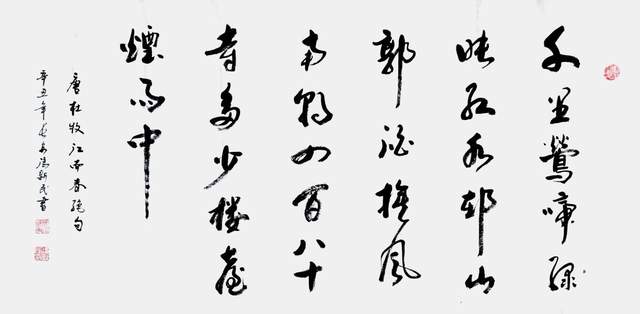 千里鶯啼綠
映紅水邨山
郭酒旗風
南朝四百八十
寺多少樓臺
煙雨中
唐杜牧江南春絕句
辛丑年長安馮新民書